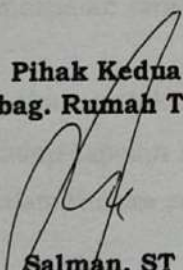 Pihak Kedua
bag. Rumah T
Salman, ST